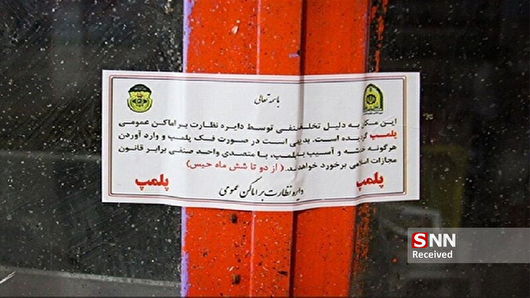 باسمه تعالی
این مکان به دلیل تخلف صنفی توسط دایره نظارت بر اماکن عمومی
پلمپ گردیده است. بدیهی است در صورت فک پلمپ و وارد آوردن
هرگونه خدشه و آسیب به پلمپ، با متصدی واحد صنفی برابر قانون
مجازات اسلامی برخورد خواهد شد. (از دو تا شش ماه حبس)
پلمپ
دایره نظارت بر اماکن عمومی
پلمپ
SNN
Received